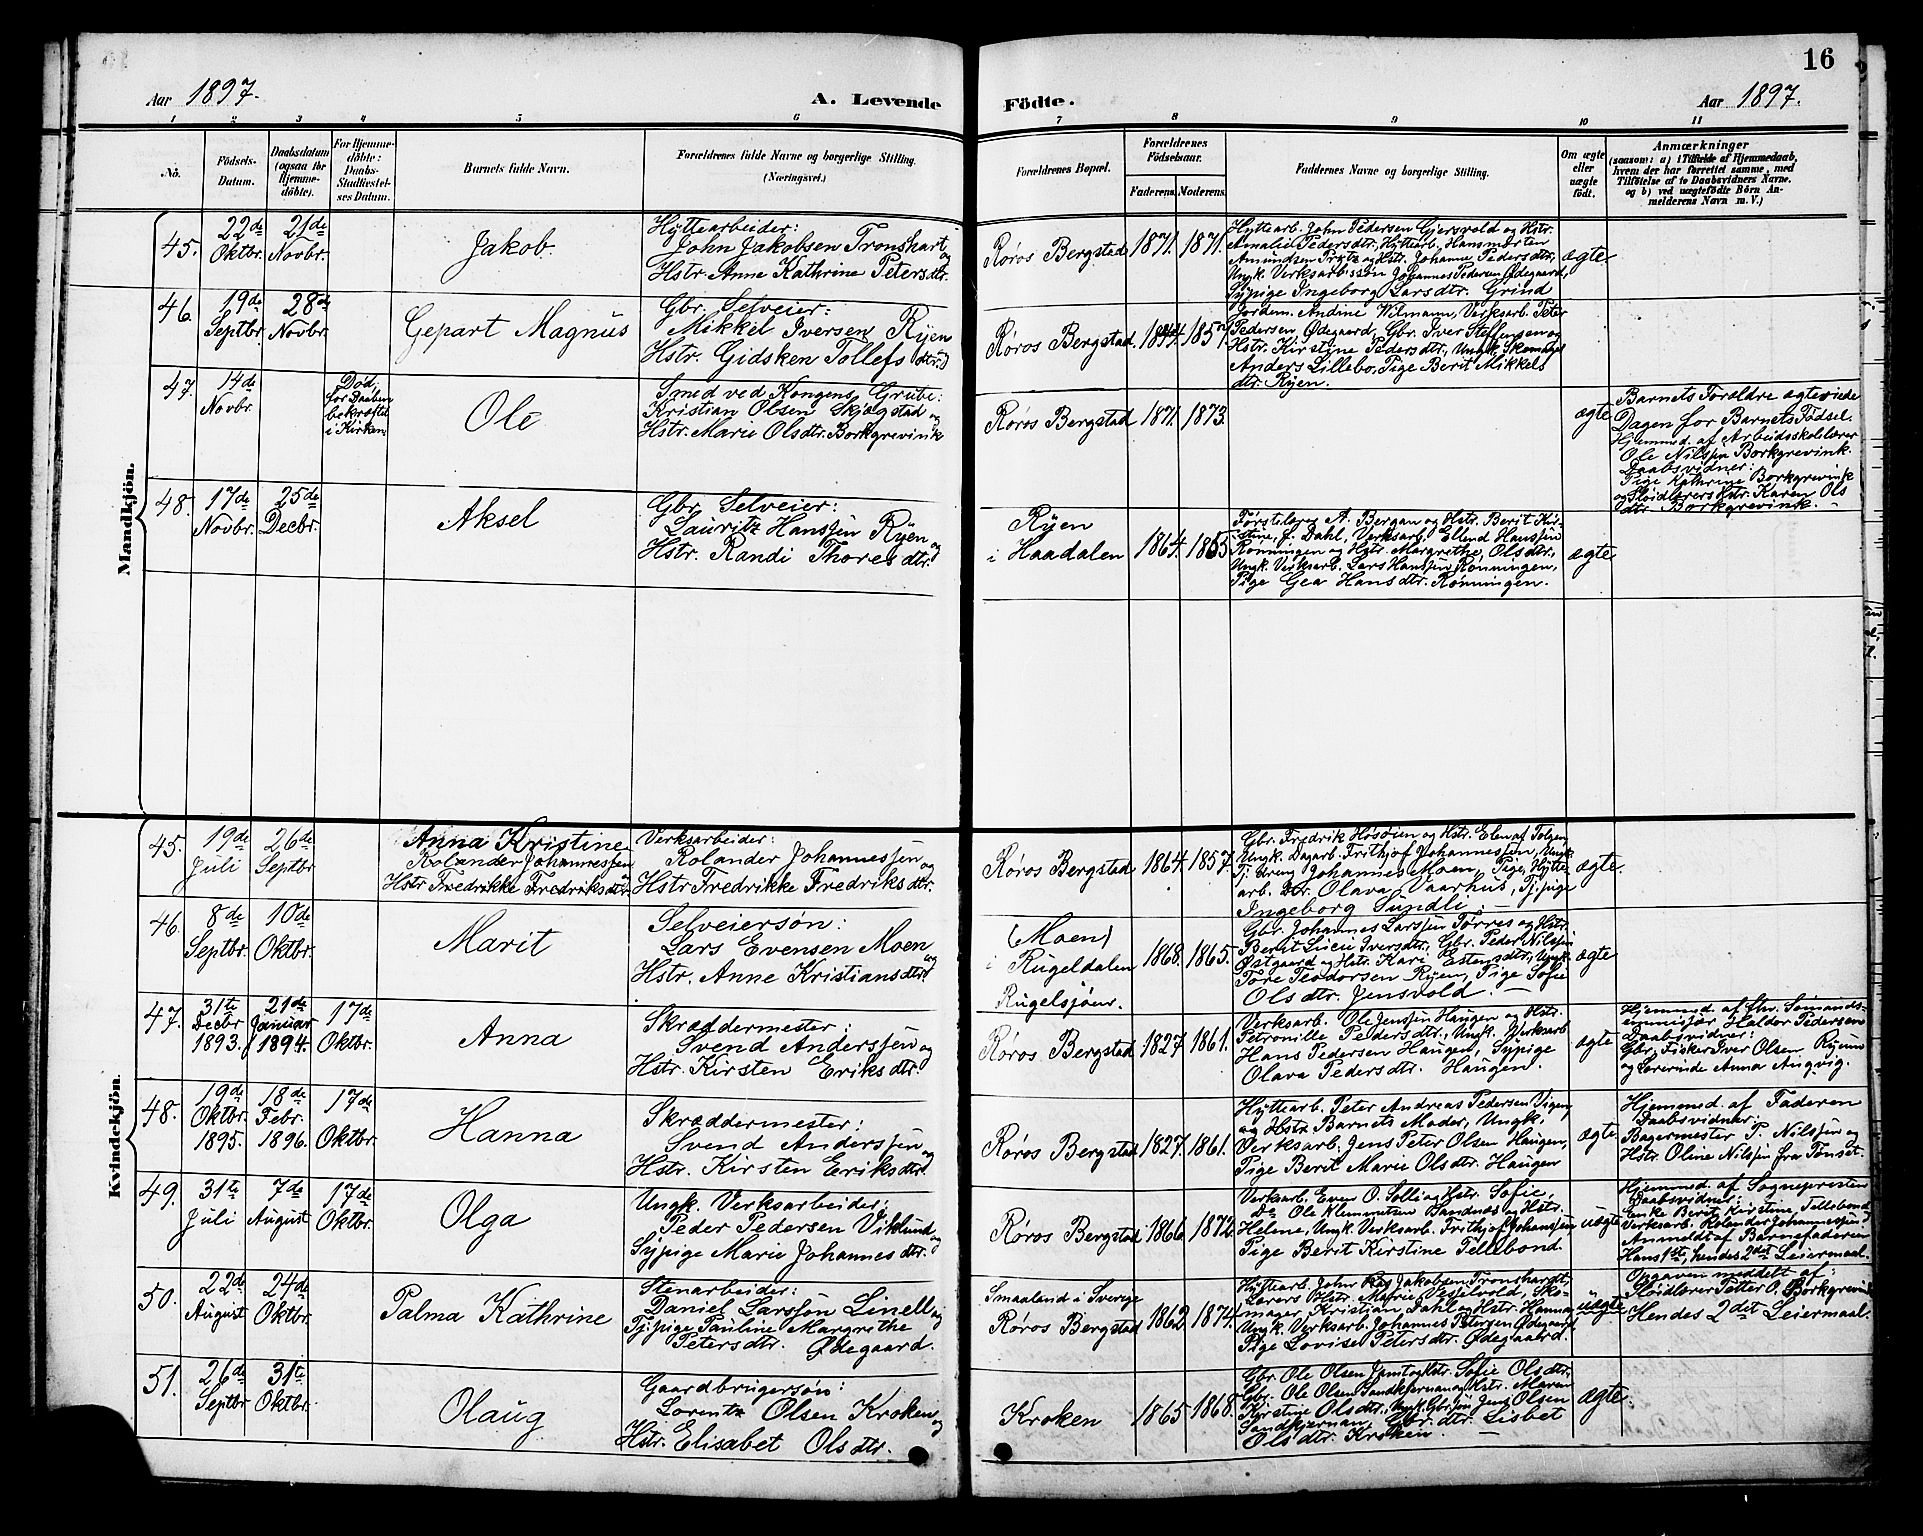 Aar 1897.
A. Levende
Födte.
Aar 1897.
16
1 2 3 4 5 6 7 8 9 10 11
No.
Födsels-
Datum.
Daabsdatum
(ogsaa for
Hjemme-
döbte).
For Hjemme-
döbte:
Daabs-
Stadfæstel-
ses Datum.
Barnets fulde Navn.
Forældrenes fulde Navne og borgerlige Stilling.
(Næringsvei.)
Forældrenes Bopæl.
Forældrenes
Födselsaar.
Faderens.
Moderens.
Faddernes Navne og borgerlige Stilling.
Om ægte
eller
uægte
födt.
Anmærkninger
(saasom: a) i Tilfælde af Hjemmedaab,
hvem der har forrettet samme, med
Tilföielse af to Daabsvidners Navne.
og b) ved uægtefödte Börn An-
melderens Navn m. V.)
Mandkjön.
45.
22de
Oktbr.
21de
Novbr.
Jakob.
Hyttearbeider:
John Jakobsen Tronshart
og
Hstr. Anne Kathrine Petersdtr.
Røros Bergstad
1871.
1871.
Hyttearb. John Pedersen Gjersvold og Hstr.
Amalie Pedersdtr, Hyttearb. Hansmorten
Amundsen Prytz og Hstr. Johanne Pedersdtr,
Ungk. Verksarb. Johannes Pedersen Ødegaard,
Sypige Ingeborg Larsdtr. Grind
ægte.
46.
19de
Septbr.
28de
Novbr.
Gepart Magnus
Gbr. Selveier:
Mikkel Iversen Ryen
Hstr. Gidsken Tollefsdtr.
Røros Bergstad.
1844.
1857.
Jordem. Andrine Wilmann, Verksarb. Peter
Pedersen Ødegaard, Gbr. Iver Steffensen og
Hstr. Kirstine Pedersdtr., Ungk.
Anders Lillebo, Pige Berit Mikkels
dtr. Ryen.
47.
14de
Novbr.
Død
før Daaben
bekræftet
i Kirken
Ole
Smed ved Kongens Grube:
Kristian Olsen Skjølstad og
Hstr. Marie Olsdtr. Borkgrevink
Røros Bergstad
1871.
1873.
ægte
Barnets Forældre ægteviede
Dagen før Barnets Fødsel.
Hjemmed. af Arbeidsskolelærer
Ole Nilssen Borkgrevink.
Daabsvidner:
Pige Kathrine Borkgrevink
og Sløidlærers Hstr. Karen Ols
dtr. Borkgrevink.
48.
17de
Novbr.
25de
Decbr.
Aksel
Gbr. Selveier:
Lauritz Hanssen Ryen
og
Hstr. Randi Thoresdtr.
Ryen
i Haadalen
1864.
1865
Førstelærer A. Bergan og Hstr. Berit Kir-
stine, f. Dahl, Verksarb. Ellend Hanssen
Rønningen og Hstr. Margrethe Olsdtr.,
Ungk. Verksarb. Lars Hanssen Rønningen,
Pige Gea Hansdtr. Rønningen.
ægte
Kvindekjön.
45.
19de
Juli
26de
Septbr
Anna Kristine
Rolander Johannessen
Hstr Fredrikke Fredriksdtr.
Verksarbeider:
Rolander Johannessen
og
Hstr Fredrikke Fredriksdtr.
Røros Bergstad
1864.
1857.
Gbr. Fredrik Høsøien og Hstr. Elen af Tolgen,
Ungk. Dagarb. Frithjof Johannessen, Ungk.
Tj. dreng Johannes Moen, Pige, Hytte-
arb. Dtr. Olava Vaarhus, Tj. pige
Ingeborg Sundli.
ægte.
46.
8de
Septbr.
10de
Oktbr.
Marit
Selveiersøn:
Lars Evensen Moen
og
Hstr. Anne Kristiansdtr.
(Moen)
i Rugeldalen
Rugelsjøen.
1868.
1865.
Gbr. Johannes Larssen Tørres og Hstr.
Berit Lucie Iversdtr., Gbr. Peder Nilssen
Østgaard og Hstr. Kari Estensdtr., Ungk.
Tore Teodorsen Ryen, Pige Sofie
Olsdtr. Jensvold.
ægte
47.
31te
Decbr
1893.
21de
Januar
1894.
17de
Oktbr.
Anna
Skræddermester:
Svend Anderssen
og
Hstr. Kirsten Eriksdtr.
Røros Bergstad
1827
1861.
Verksarb. Ole Jenssen Haugen og Hstr.
Petronille Pedersdtr., Ungk. Verksarb
Hans Pedersen Haugen, Sypige
Olava Pedersdtr. Haugen.
ægte
Hjemmed. af Shv. Sømands-
emmissær Haldor Pedersen
Daabsvidner:
Gbr. Fisker Iver Olsen
og Lærerinde Anna Angvig.
48.
19de
Oktbr.
1895.
18de
Febr.
1896.
17de
Oktbr.
Hanna
Skræddermester:
Svend Anderssen
og
Hstr. Kirsten Eriksdtr.
Røros Bergstad
1827.
1861.
Hyttearb. Peter Andreas Pedersen Vigen
og Hstr. Barnets Moder, Ungk.
Verksarb. Jens Peter Olsen Haugen,
Pige Berit Marie Olsdtr. Haugen
ægte
Hjemmed. af Faderen
Daabsvidner:
Bagermester P. Nilssen og
Hstr. Oline Nilssen fra Tønset.
49.
31te
Juli
7de
August
17de
Oktbr.
Olga
Ungk. Verksarbeider:
Peder Pedersen Viklund
og
Sypige Marie Johannesdtr.
Røros Bergstad
1866
1872.
Verksarb. Even O. Solli og Hstr. Sofie,
Do Ole Klemmetsen Sandnes og Hstr.
Helene, Ungk. Verksarb. Frithjof Johanssen,
Pige Berit Kirstine Tellebond.
uægte
Hjemmed. af Sognepresten
Daabsvidner:
Enke Berit Kirstine Tellebond,
Verksarb. Rolander Johannessen
Anmeldt af Barnefaderen
Hans 1ste, hendes 2det Leiermaal.
50.
22de
August
24de
Oktbr.
Palma Kathrine
Stenarbeider:
Daniel Larssøn Linell
og
Tj. pige Pauline Margrethe
Petersdtr. Ødegaard.
Smaaland i Sverige
Røros Bergstad
1862
1874.
Hyttearb. John Jakobsen Tronshardt,
Lærers Hstr. Marie Jesselvold, Sko-
mager Kristian Dahl og Hstr. Hanna
Ungk. Verksarb. Johannes Petersen Ødegaard
Pige Lovise Petersdtr. Ødegaard.
uægte
Opgaven meddelt af:
Sløidlærer Petter O. Borkgrevink
Hendes 2det Leiermaal.
51.
26de
Septbr
31te
Oktbr.
Olaug
Gaardbrugersøn:
Lorentz Olsen Kroken
og
Hstr. Elisabet Olsdtr.
Kroken
1865
1868.
Gbr. Ole Olsen Jamt og Hstr. Sofie Olsdtr.,
Gbr. Ole Olsen Sandkjernan og Hstr. Maren
Kirstine Olsdtr., Ungk. Gbr. søn Jens Olsen
Sandkjernan, Gbr. dtr. Lisbet
Olsdtr. Kroken.
ægte.